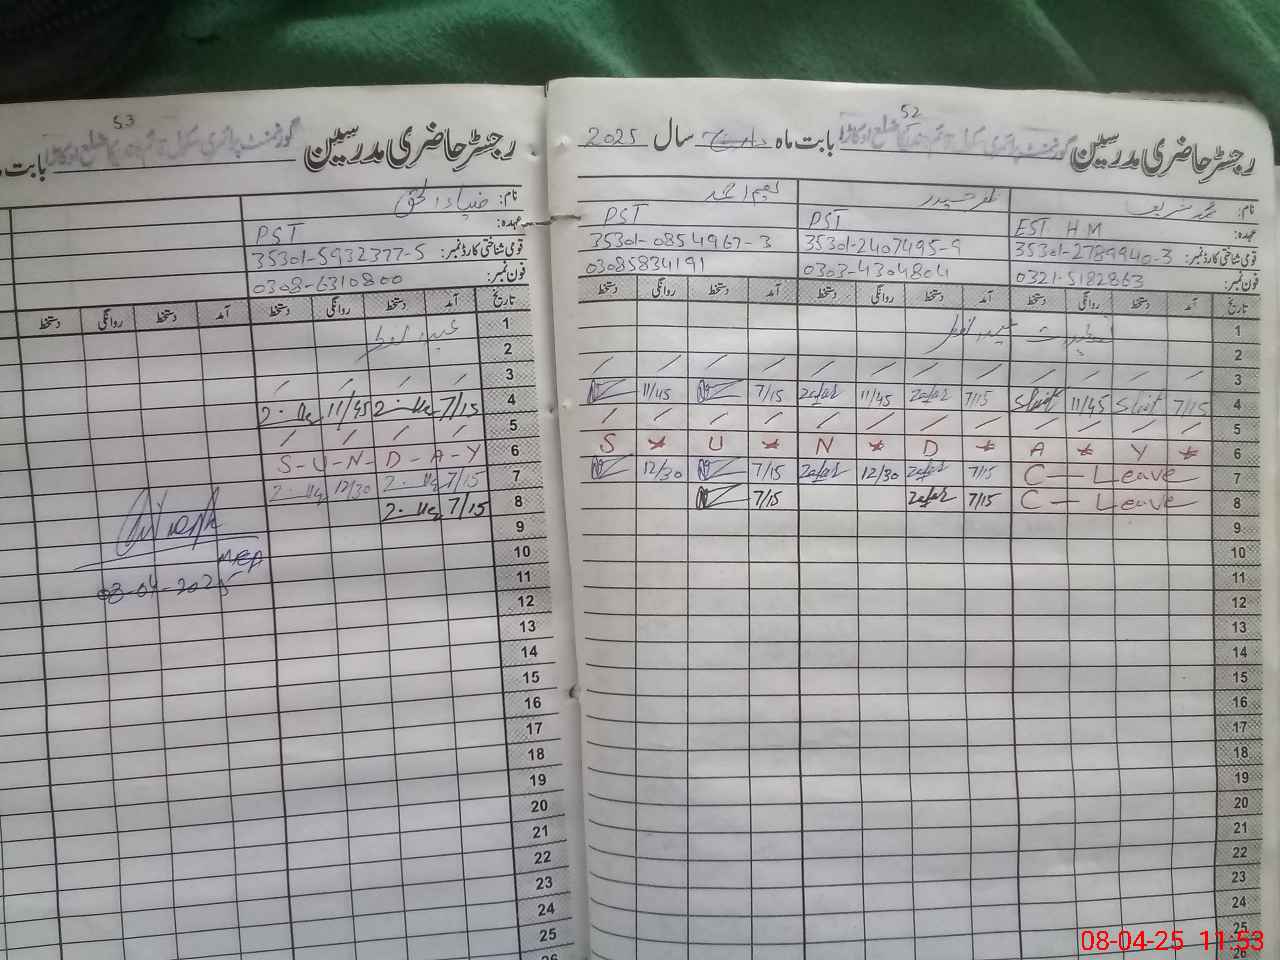 52
رجسٹر حاضری مدرسین گورنمنٹ پرائمری سکول ضلع اوکاڑا بابت ماہ سال 2025
نام: محمد شریف ظفر حیدر نعیم احمد
عہدہ: EST HM PST PST
قومی شناختی کارڈ نمبر: 35301-2789940-3 35301-2407495-9 35301-0854967-3
فون نمبر: 0321-5182863 0303-4304804 03085834191
تاریخ آمد دستخط روانگی دستخط آمد دستخط روانگی دستخط آمد دستخط روانگی دستخط
1
2
3 / / / / / / / / / / / /
4 7/15 11/45 7/15 Zafar 11/45 Zafar 7/15 11/45
5 / / / / / / / / / / / /
6 S * U * N * D * A * Y *
7 C — Leave 7/15 Zafar 12/30 Zafar 7/15 12/30
8 C — Leave 7/15 Zafar 7/15
9
10
11
12
13
14
15
16
17
18
19
20
21
22
23
24
25
26
53
رجسٹر حاضری مدرسین گورنمنٹ پرائمری سکول ضلع اوکاڑا بابت
نام: ضیاء الحق
عہدہ: PST
قومی شناختی کارڈ نمبر: 35301-5932377-5
فون نمبر: 0308-6310800
تاریخ آمد دستخط روانگی دستخط آمد دستخط روانگی دستخط
1
2
3 / / / /
4 7/15 11/45
5 / / / /
6 S-U-N-D-A-Y
7 7/15 12/30
8 7/15
9
10
11
12
13
14
15
16
17
18
19
20
21
22
23
24
25
26
MEA
08-04-2025
08-04-25 11:53